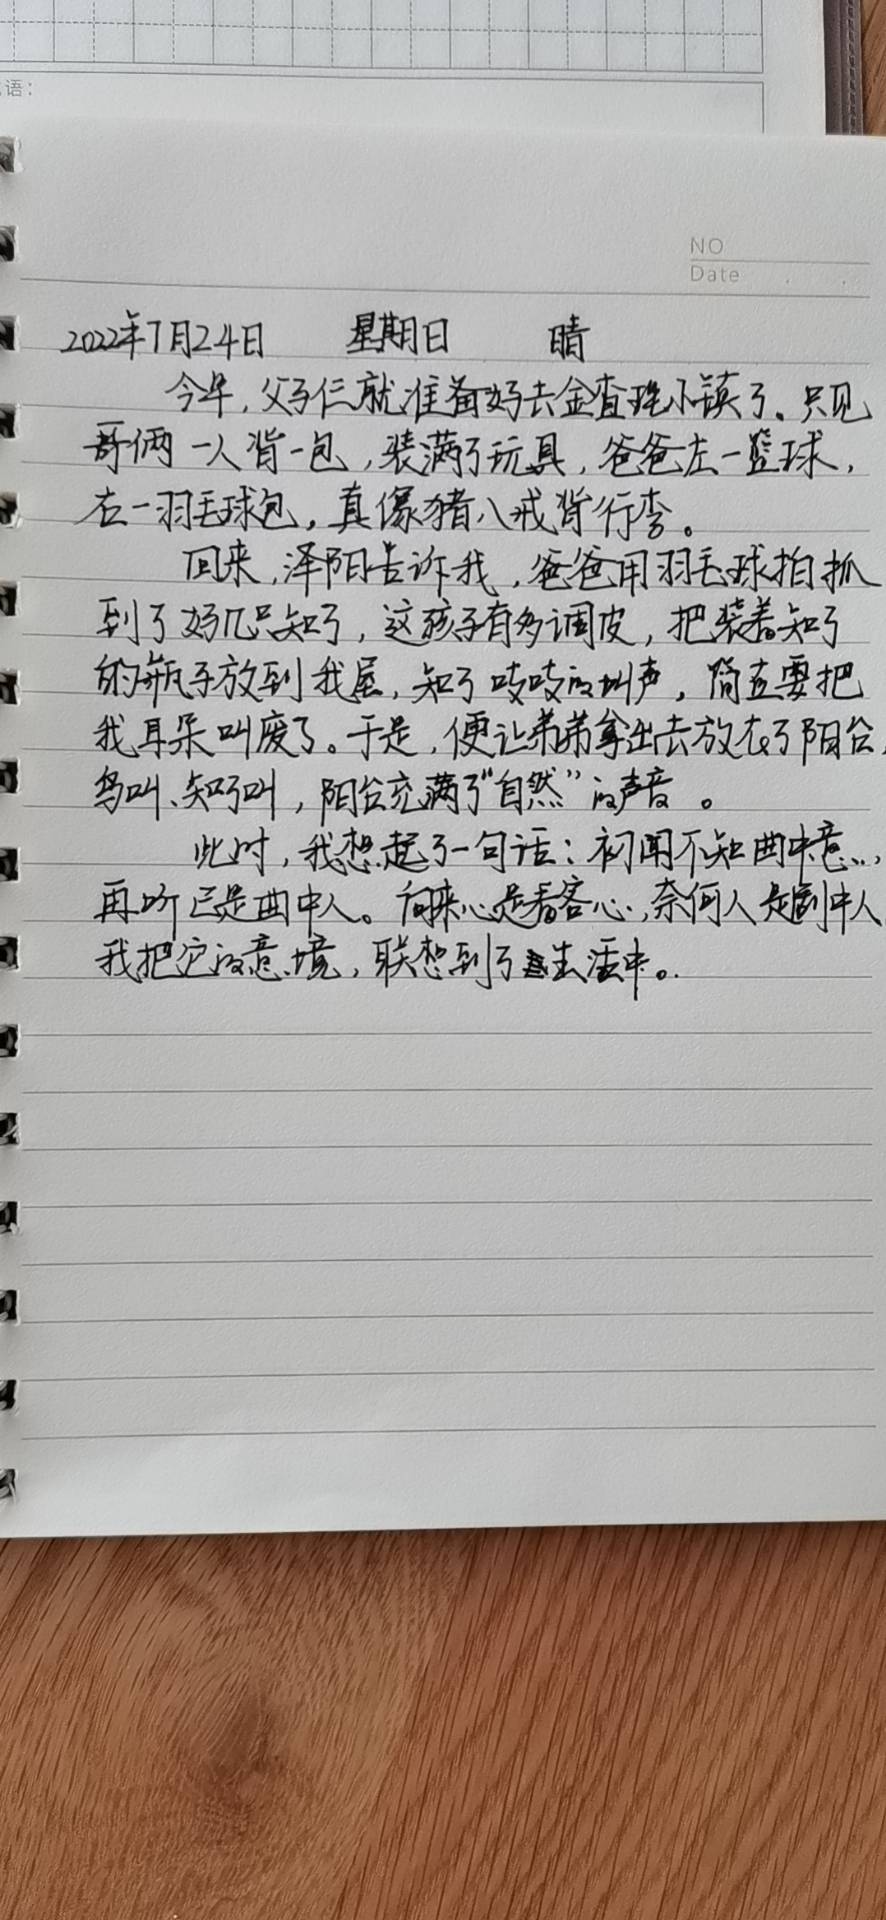 语：
NO
Date
2022年7月24日 星期日 晴
今早，父子仨就准备好去金查理小镇了。只见
哥俩一人背一包，装满了玩具，爸爸左一篮球，
右一羽毛球包，真像猪八戒背行李。
回来，泽阳告诉我，爸爸用羽毛球拍抓
到了好几只知了，这孩子有多调皮，把装着知了
的瓶子放到我屋，知了吱吱的叫声，简直要把
我耳朵叫废了。于是，便让弟弟拿出去放在了阳台，
鸟叫、知了叫，阳台充满了“自然”的声音。
此时，我想起了一句话：初闻不知曲中意…，
再听已是曲中人。向来心是看客心，奈何人是剧中人
我把它的意境，联想到了生活中。